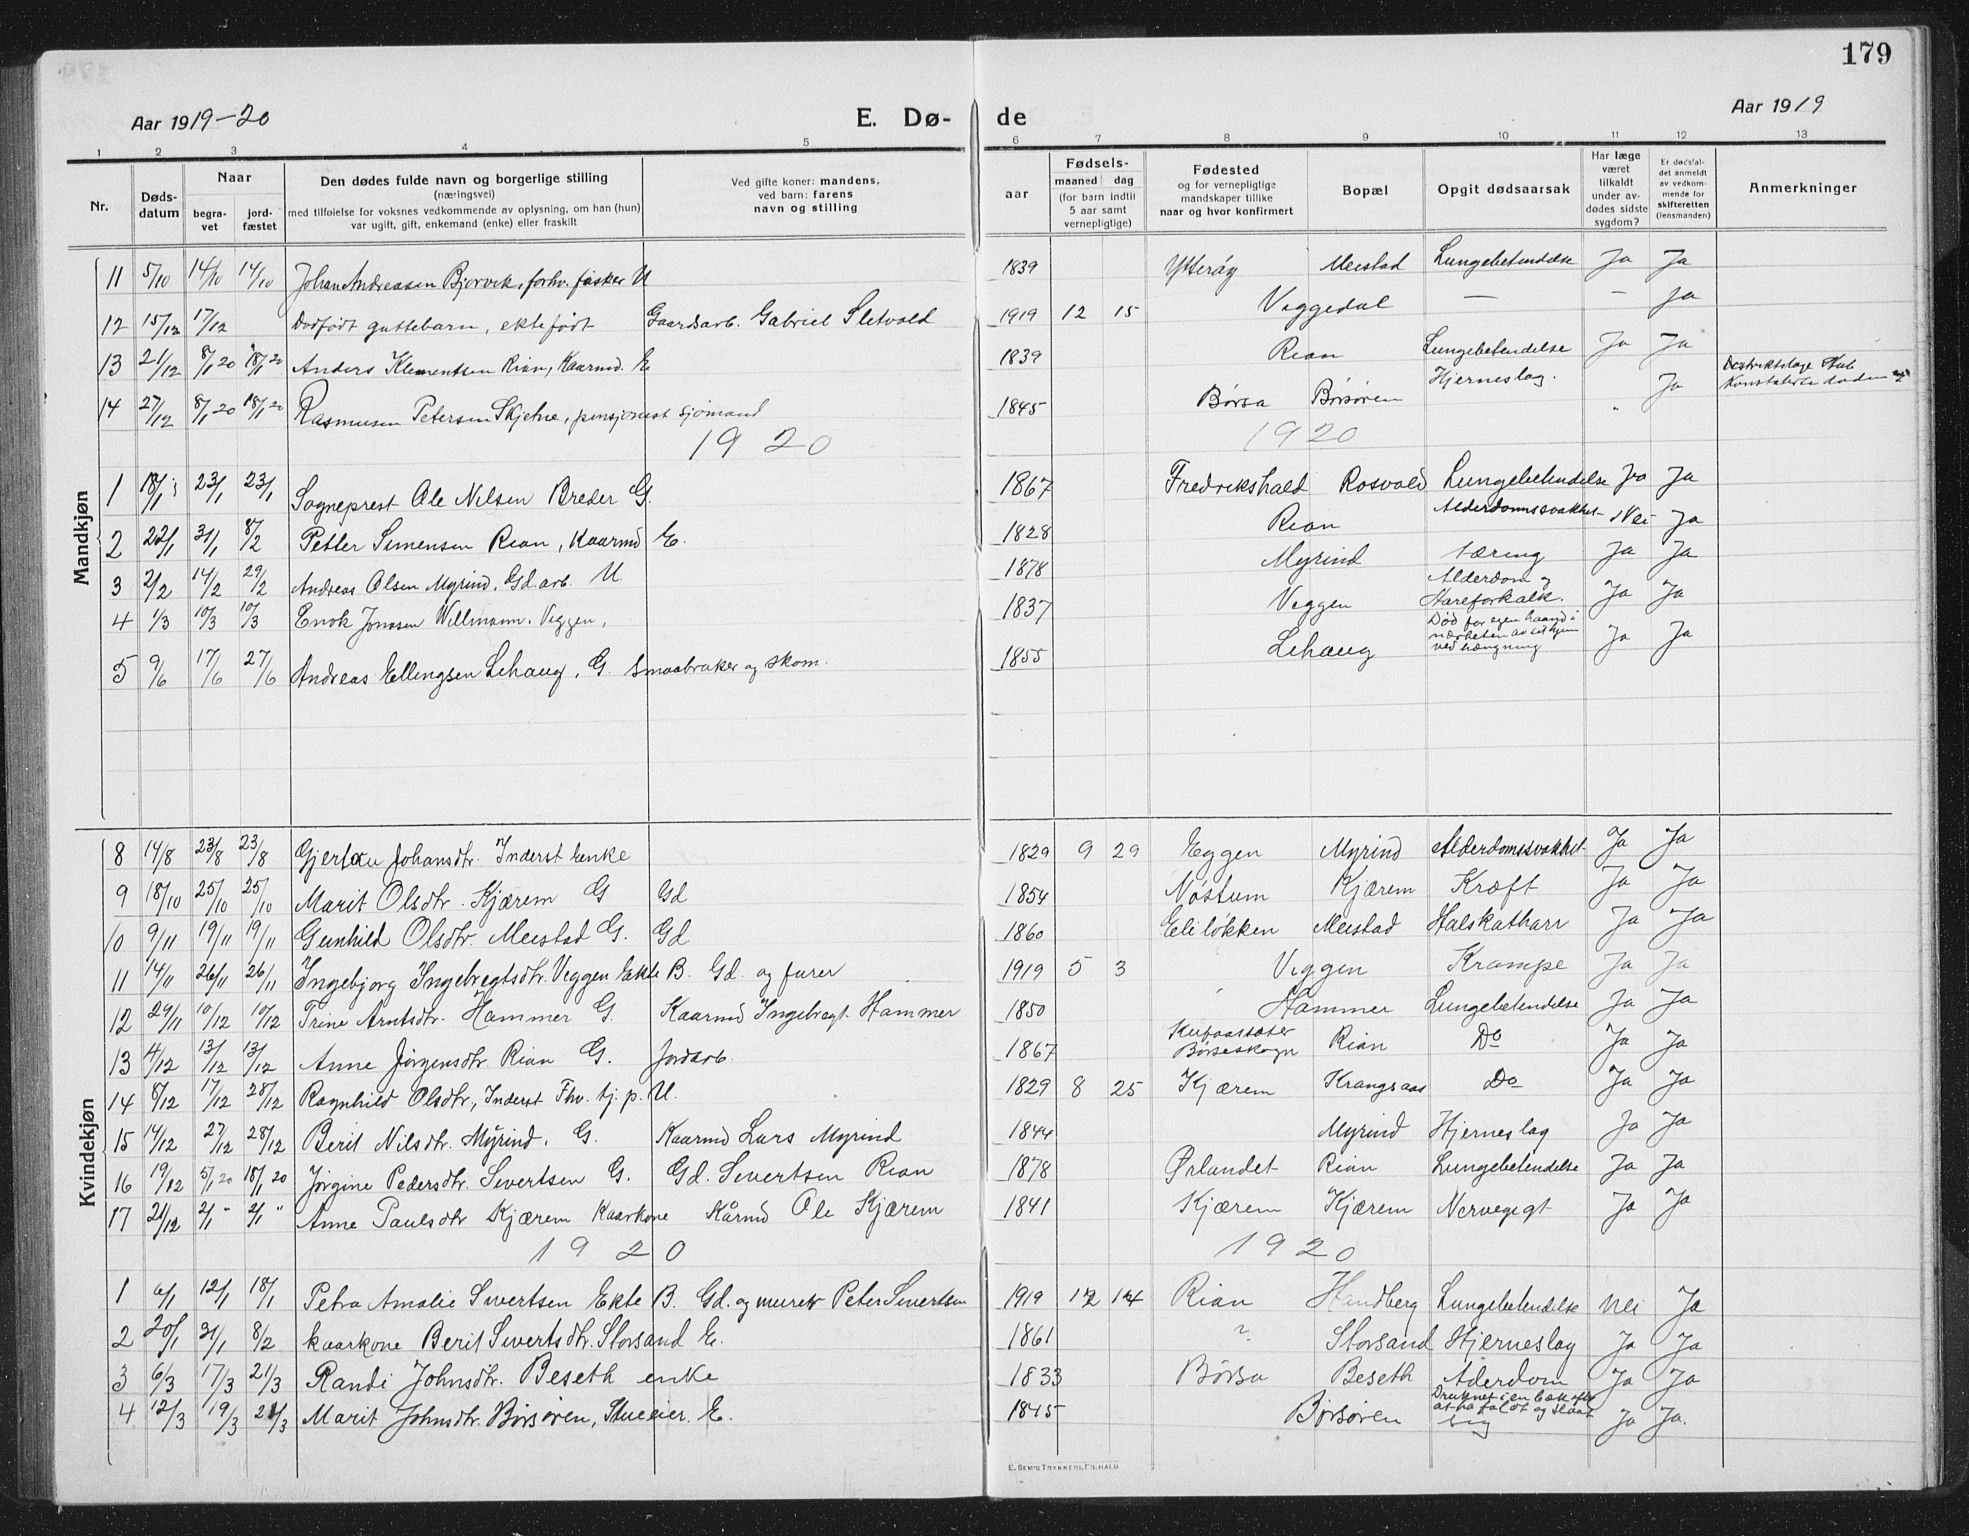 179
Aar 1919-20 E. Dø- de Aar 1919
1 2 3 4 5 6 7 8 9 10 11 12 13
Nr. Døds-datum Naar begra-vet jord-fæstet Den dødes fulde navn og borgerlige stilling (næringsvei) med tilføielse for voksnes vedkommende av oplysning, om han (hun) var ugift, gift, enkemand (enke) eller fraskilt Ved gifte koner: mandens, ved barn: farens navn og stilling aar Fødsels- maaned dag (for barn indtil 5 aar samt vernepligtige) Fødested og for vernepligtige mandskaper tillike naar og hvor konfirmert Bopæl Opgit dødsaarsak Har læge været tilkaldt under av-dødes sidste sygdom? Er dødsfal-det anmeldt av vedkom-mende for skifteretten (lensmanden) Anmerkninger
Mandkjøn
11 5/10 14/10 14/10 Johan Andreasen Bjørvik, forhv. fisker U 1839 Ytterøy Meistad Lungebetendelse Ja Ja
12 15/12 17/12 Dødfødt guttebarn, ektefødt Gaardsarb. Gabriel Sletvold 1919 12 15 Viggedal — — Ja
13 21/12 8/1 20 18/1 20 Anders Klementsen Rian, Kaarmd. E 1839 Rian Lungebetendelse Ja Ja
14 27/12 8/1 20 18/1 20 Rasmusen Petersen Skjetne, pensjonist sjømand 1845 Børsa Børsøren Hjerneslag. " Ja
1920 1920
1 18/1 23/1 23/1 Sogneprest Ole Nilsen Breder G. 1867 Fredrikshald Rosvold Lungebetendelse Ja Ja
2 22/1 31/1 8/2 Petter Simensen Rian, Kaarmd E. 1828 Rian Alderdomssvakhet Nei Ja
3 2/2 14/2 29/2 Andreas Olsen Myrind, Gd. arb. U 1878 Myrind Tæring Ja Ja
4 1/3 10/3 10/3 Enok Jonasen Willmann. Viggen, 1837 Viggen Alderdom og Aareforkalk. Ja Ja
5 9/6 17/6 27/6 Andreas Ellingsen Lihaug, G. Smaabruker og skom. 1855 Lihaug Død for egen haand i nærheten av sit hjem ved hængning Ja Ja
Kvindekjøn
8 14/8 23/8 23/8 Johansdtr. Inderst Enke 1829 9 29 Eggen Myrind Alderdomssvakhet Ja Ja
9 18/10 25/10 25/10 Marit Olsdtr. Kjærem G Gd 1854 Nøstum Kjærem Kræft Ja Ja
10 9/11 19/11 19/11 Gunhild Olsdtr. Meistad G. Gd 1860 Eliløkken Meistad Halskatharr Ja Ja
11 14/11 26/11 26/11 Ingebjorg Ingebregtsdtr. Viggen Ekte B. Gd. og furer 1919 5 3 Viggen Krampe Ja Ja
12 29/11 10/12 10/12 Trine Arntsdtr. Hammer G. Kaarmd Ingebregt Hammer 1850 Hammer Lungebetendelse Ja Ja
13 4/12 13/12 13/12 Anne Jørgensdtr Rian G. Jordarb. 1867 Børseskogn Rian Do Ja Ja
14 8/12 17/12 28/12 Ragnhild Olsdtr, Inderst Fhv. tj. p. U. 1829 8 25 Kjærem Krangsaas Do Ja Ja
15 14/12 27/12 28/12 Berit Nilsdtr. Myrind. G. Kaarmd Lars Myrind 1844 Myrind Hjerneslag Ja Ja
16 19/12 5/1 20 18/1 20 Jørgine Pedersdtr. Sivertsen G. Gd. Sivertsen Rian 1878 Ørlandet Rian Lungebetendelse Ja Ja
17 21/12 2/1 " 2/1 " Anne Paulsdtr Kjærem Kaarkone Kårmd Ole Kjærem 1841 Kjærem Kjærem Nervegigt Ja Ja
1920 1920
1 6/1 12/1 18/1 Petra Amalie Sivertsen Ekte B. Gd. og murer Peter Sivertsen 1919 12 14 Rian Handberg Lungebetendelse Nei Ja
2 20/1 31/1 8/2 Kaarkone Berit Sivertsdtr. Storsand E. 1861 ? Storsand Hjerneslag Ja Ja
3 6/3 17/3 21/3 Randi Johnsdtr. Beseth enke 1833 Børsa Beseth Alderdom Ja Ja
4 12/3 19/3 21/3 Marit Johnsdtr. Børsøren, Stueeier. E. 1845 Børsøren Druknet i en bæk efter at ha faldt og slaat sig Ja Ja.
E. SEM'S TRYKKERI, FR.HALD